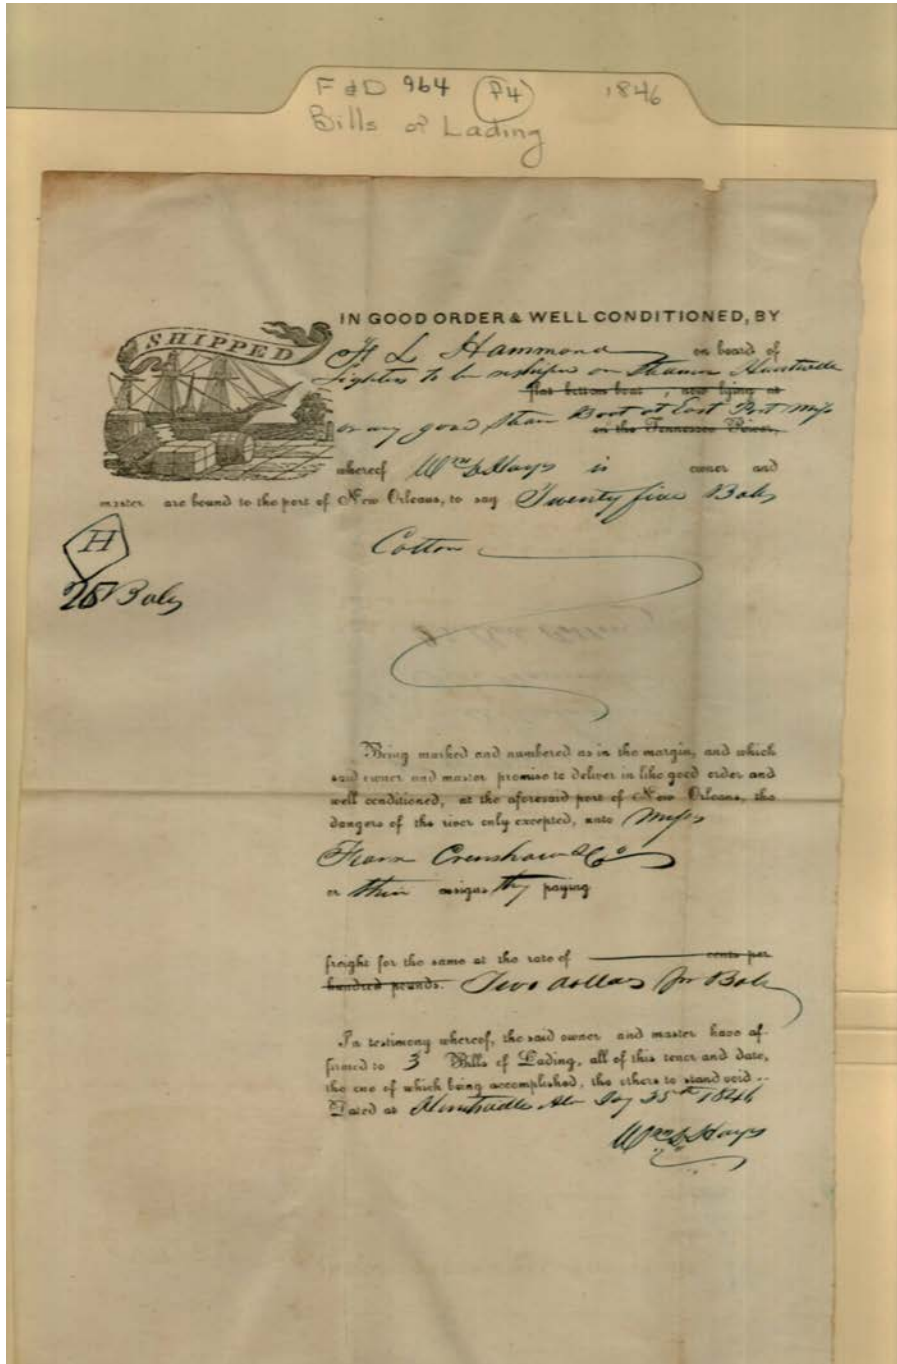 F & D 964 P4 1846
Bills of Lading
SHIPPED
IN GOOD ORDER & WELL CONDITIONED, BY
H L Hammond on board of
Lighters to be reshiped on Steamer Huntsville
flat bottom boat, now lying at
or any good Steam Boat at East Port Miss
in the Tennessee River,
whereof Wm D Hays is owner and
master are bound to the port of New Orleans, to say Twenty five Bales
Cotton
H
25 Bales
Being marked and numbered as in the margin, and which
said owner and master promise to deliver in like good order and
well conditioned, at the aforesaid port of New Orleans, the
dangers of the river only excepted, unto Messrs
Crenshaw & Co
or their assigns they paying
freight for the same at the rate of cents per
hundred pounds. Two dollars per Bale
In testimony whereof, the said owner and master have af-
firmed to 3 Bills of Lading, all of this tenor and date,
the one of which being accomplished, the others to stand void..
Dated at Huntsville Ala 25th 1846
Wm D Hays